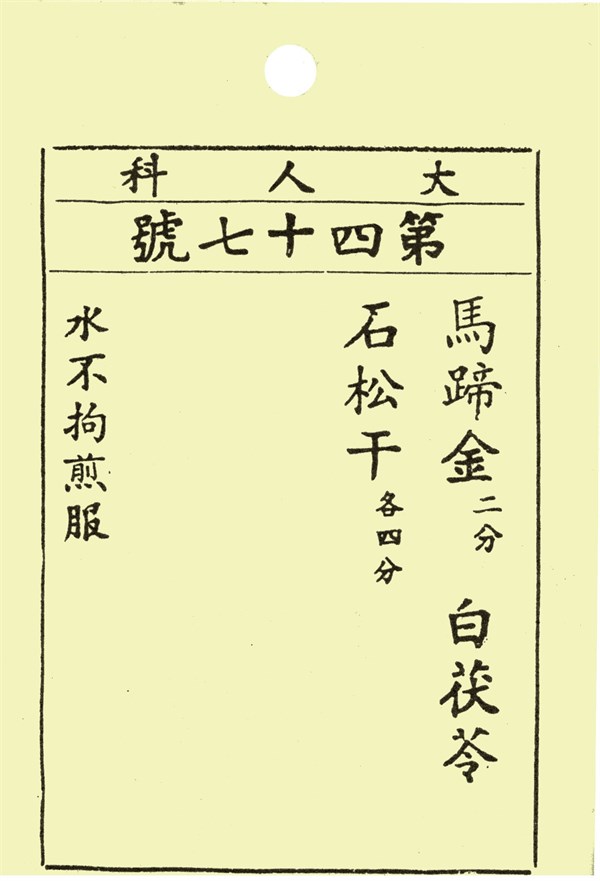 大人科
第四十七號
馬蹄金二分 白茯苓
石松干各四分
水不拘煎服